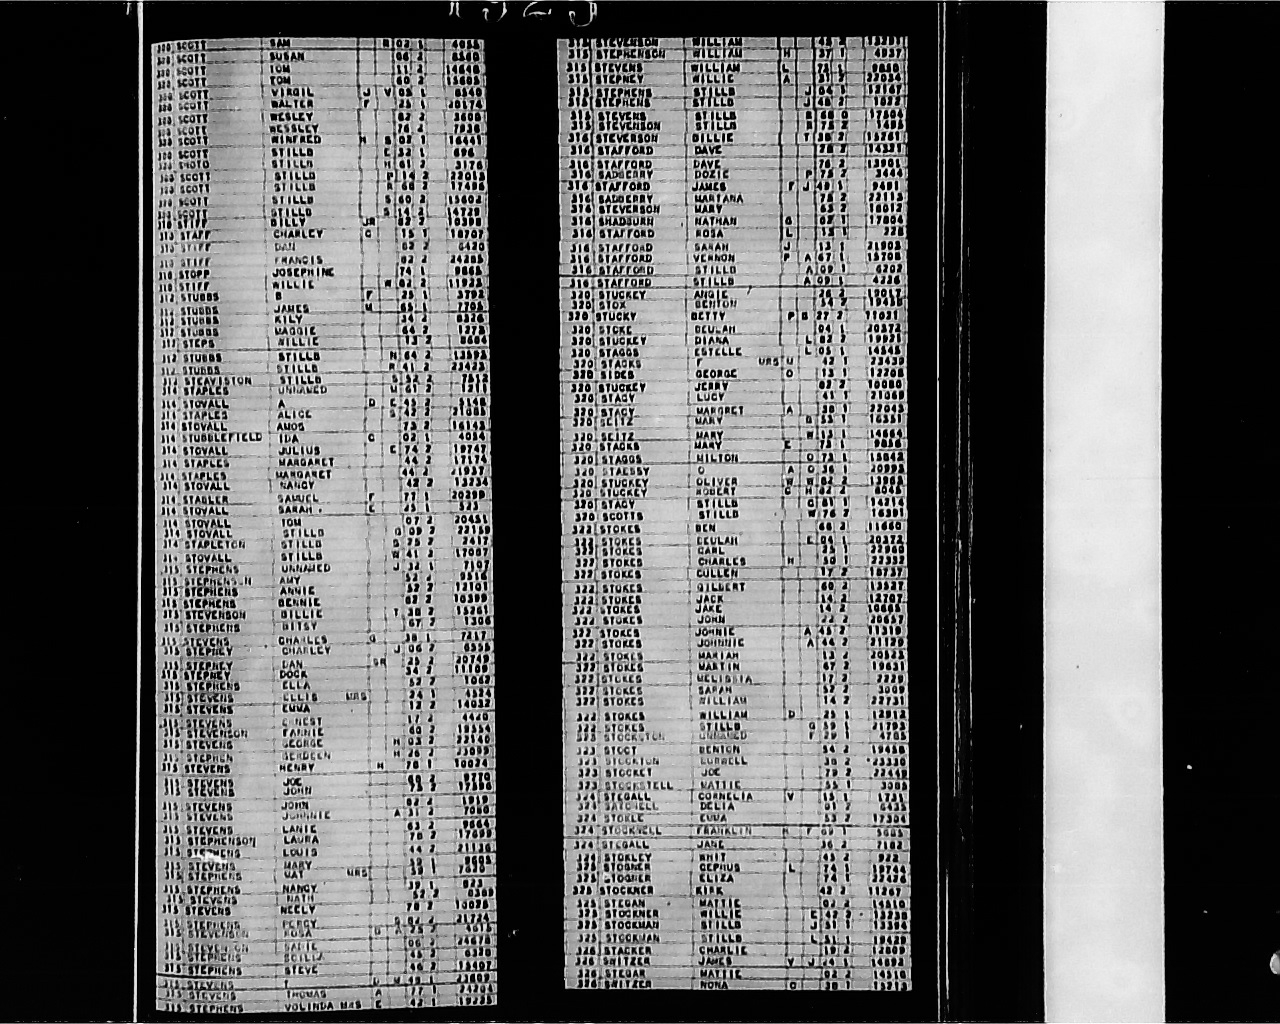 320 SCOTT SAM R 02 1
320 SCOTT SUSAN 66 2 8560
320 SCOTT TOM 11 2 14648
320 SCOTT TOM 60 2 15605
320 SCOTT VIRGIL J V 05 1 6540
320 SCOTT WALTER F 25 1 20174
320 SCOTT WESLEY 62 2 3605
320 SCOTT WESSLEY 76 2 7936
320 SCOTT WINFRED H S 02 1 16441
320 SCOTT STILLB E 32 1 696
STILLB H 61 2 3176
320 SCOTT STILLB P 14 2 22015
320 SCOTT STILLB R 66 2 17496
320 SCOTT STILLB S 60 2 15602
320 SCOTT STILLB S 14 2 14729
310 STIFF BILLY JR 02 2 10398
310 STAFF CHARLEY C 15 1 18707
310 STIFF DAN 62 2 6420
310 STIFF FRANCIS 02 2 24285
310 STOPP JOSEPHINE 74 1 9865
310 STIFF WILLIE W 02 2 11925
312 STUBBS B F 25 1 3792
312 STUBBS JAMES M 65 1 7705
312 STUBBS KILY 34 2 8326
312 STUBBS MAGGIE 64 2 1275
312 STEPS WILLIE 13 2 8604
312 STUBBS STILLB N 64 2 13593
312 STUBBS STILLB R 41 2 23423
312 STEAVISTON STILLB S 52 2 7512
314 STAPLES UNNAMED M 61 2 1211
314 STOVALL A D E 45 2 5148
314 STAPLES ALICE S 42 2 21085
314 STOVALL AMOS 73 2 16143
314 STUBBLEFIELD IDA C 02 1 4054
314 STOVALL JULIUS E 74 2 19747
314 STAPLES MARGARET 44 2 17174
314 STAPLES MARGARET 44 2 21937
314 STOVALL NANCY 42 2 13234
314 STABLER SAMUEL F 77 1 20299
314 STOVALL SARAH E 25 1 523
314 STOVALL TOM 07 2 20451
314 STOVALL STILLB O 09 2 22159
314 STAPLETON STILLB S 75 2 7417
314 STOVALL STILLB W 41 2 17007
315 STEPHENS UNNAMED J 32 1 7107
315 STEPHENSON AMY 52 2 9516
315 STEPHENS ANNIE 52 2 12101
315 STEPHENS BENNIE 62 2 10399
315 STEVENSON BILLIE T 38 2 15261
315 STEPHENS BITSY 67 2 1306
315 STEVENS CHARLES G 38 1 7217
315 STEPNEY CHARLEY J 06 2 6555
315 STEPNEY DAN SR 25 2 20749
315 STEPNEY DOCK 34 2 11109
315 STEPHENS ELLA 52 2 1062
315 STEVENS ELLIS MRS 24 1 4524
315 STEVENS EMMA 12 2 14032
315 STEVENS ERNEST 17 2 4420
315 STEVENSON FANNIE 60 2 19554
315 STEVENS GEORGE H 03 2 22140
315 STEPHEN BERDEEN H 26 2 23099
315 STEVENS HENRY H 78 1 10024
315 STEVENS JOE 60 2 9770
315 STEVENS JOHN 73 2 17396
315 STEVENS JOHN 82 2 1919
315 STEVENS JOHNNIE A 31 2 7080
315 STEVENS LANIE 63 2 9664
315 STEPHENSON LAURA 76 2 17099
315 STEPHENS LOUIS 44 2 21136
315 STEVENS MARY 59 1 8605
315 STEPHENS MAY MRS 39 1 7620
315 STEPHENS NANCY 39 1 823
315 STEVENS NATH 52 2 0389
315 STEVENS NEELY 78 2 10025
315 STEPHENS PERCY S 04 2 21724
315 STEVENSON ROSA D A 25 2 4015
315 STEVENSON SADIE 06 2 24678
315 STEPHENS SCILLA 45 2 6320
315 STEPHENS STEVE 46 2 15407
315 STEVENS T D M 49 1 23609
315 STEVENS THOMAS A 77 1 24204
315 STEPHENS VOLINDA MRS E 42 1 19225
315 STEVENSON WILLIAM 45 2
315 STEPHENSON WILLIAM H 37 1 4937
315 STEVENS WILLIAM L 75 1 9850
315 STEPNEY WILLIE A 31 2 22034
315 STEPHENS STILLB J 04 1 12167
315 STEPHENS STILLB J 48 2 1022
315 STEVENS STILLB R 68 0 17504
315 STEVENSON STILLB R 75 2 4096
316 STEVERSON BILLIE T 38 2 15261
316 STAFFORD DAVE 26 2 14321
316 STAFFORD DAVE 76 2 13901
316 SADBERRY DOZIE P 75 2 3444
316 STAFFORD JAMES F J 49 1 9491
316 SADBERRY MARIANA 75 2 22113
316 STEVERSON MARY 52 2 16012
316 SHADBURN NATHAN G 02 1 17804
316 STAFFORD ROSA L 13 1 228
316 STAFFORD SARAH J 13 1 21905
316 STAFFORD VERNON P A 67 1 15706
316 STAFFORD STILLB A 09 1 6202
316 STAFFORD STILLB A 09 1 4226
320 STUCKEY ANGIE 26 2 19017
320 STOX BENTON 54 2 19415
320 STUCKY BETTY P B 27 2 11021
320 STOKE BEULAH 04 1 20372
320 STUCKEY DIANA L 82 2 19921
320 STAGGS ESTELLE L 05 1 14545
320 STACKS F MRS U 42 1 23430
320 SIDES GEORGE O 13 1 12206
320 STUCKEY JERRY 82 2 10080
320 STACY LUCY 41 1 21069
320 STACY MARGRET A 38 1 22043
320 SEITZ MARY G 53 1 16351
320 SEITZ MARY W 13 1 14664
320 STACKS MARY E 73 1 9856
320 STAGGS MILTON O 73 1 15642
320 STAESSY O A O 36 1 20995
320 STUCKEY OLIVER W W 82 2 13963
320 STUCKEY ROBERT C H 82 2 8045
320 STACY STILLB G 31 1 14576
320 SCOTTS STILLB W 76 2 16391
322 STOKES BEN 68 2 11660
322 STOKES BEULAH E 04 1 20372
322 STOKES CARL 25 1 22960
322 STOKES CHARLES H 50 1 22352
322 STOKES CULLEN 17 2 18737
322 STOKES GILBERT 60 2 13527
322 STOKES JACK 14 2 12707
322 STOKES JAKE 14 2 10665
322 STOKES JOHN 22 2 20657
322 STOKES JOHNIE A 45 2 11319
322 STOKES JOHNNIE A 44 2 21120
322 STOKES MARIAH 13 2 20523
322 STOKES MARTIN 67 2 19631
322 STOKES MELISSIA 17 2 2229
322 STOKES SARAH 52 2 3009
322 STOKES WILLIAM 14 2 22731
322 STOKES WILLIAM D 25 1 12912
322 STOKES STILLB G 59 1 21792
322 STOCKSTON UNNAMED F 29 1 4785
323 STOCT BENTON 54 2 19458
323 STOCKTON BURRELL 38 2 23330
323 STOCKET JOE 79 2 22449
323 STOCKSTELL MATTIE 55 1 3085
324 STEGALL CORNELIA V 15 1 1731
324 SATCHELL DELIA 01 2 6435
324 STOKLE EMMA 53 2 17304
324 STOCKWELL FRANKLIN H F 69 1 5685
324 STEGALL JANE 36 2 7182
324 STOKLEY WHIT 45 2 922
325 STOGNER CEPHUS L 74 1 19744
325 STOGNER ELIZA 74 1 4200
325 STOCKNER KIRK 42 2 11267
325 STEGAN MATTIE 02 2 14510
325 STOCKNER WILLIE E 42 2 13236
325 STOCKMAN STILLB J 51 1 13394
325 STOCKMAN STILLB L 51 1 19429
326 STACKER CHARLIE 19 2 12809
326 SWITZER JAMES V J 24 1 14692
326 STEGAR MATTIE 02 2 14510
326 SWITZER NONA O 38 1 15213